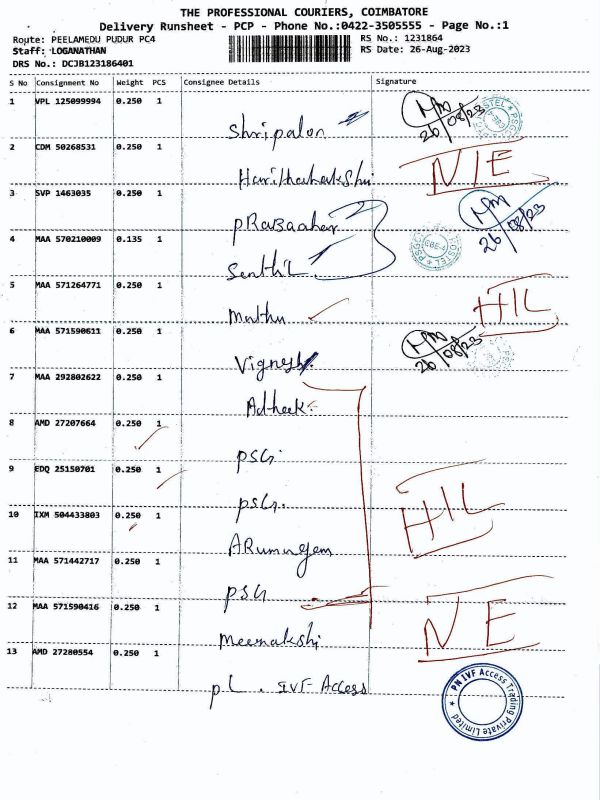 THE PROFESSIONAL COURIERS, COIMBATORE
Delivery Runsheet - PCP - Phone No.:0422-3505555 - Page No.:1
Route: PEELAMEDU PUDUR PC4 RS No.: 1231864
Staff: LOGANATHAN RS Date: 26-Aug-2023
DRS No.: DCJB123186401
S No Consignment No Weight PCS Consignee Details Signature
1 VPL 125099994 0.250 1 Shripalan 26/08/23
2 CDM 50268531 0.250 1 N/E
3 SVP 1463035 0.250 1 PRabaaher 26/08/23
4 MAA 570210009 0.135 1 Senthil
5 MAA 571264771 0.250 1 Muthu H/L
6 MAA 571590611 0.250 1 Vignesh 26/08/23
7 MAA 292802622 0.250 1 Adheek
8 AMD 27207664 0.250 1 PSG
9 EDQ 25150701 0.250 1 PSG.
10 IXM 504433803 0.250 1 ARumugam H/L
11 MAA 571442717 0.250 1 PSG
12 MAA 571590416 0.250 1 Meenakshi N E
13 AMD 27280554 0.250 1 P L . IVF Access
PN IVF Access Trading Private Limited